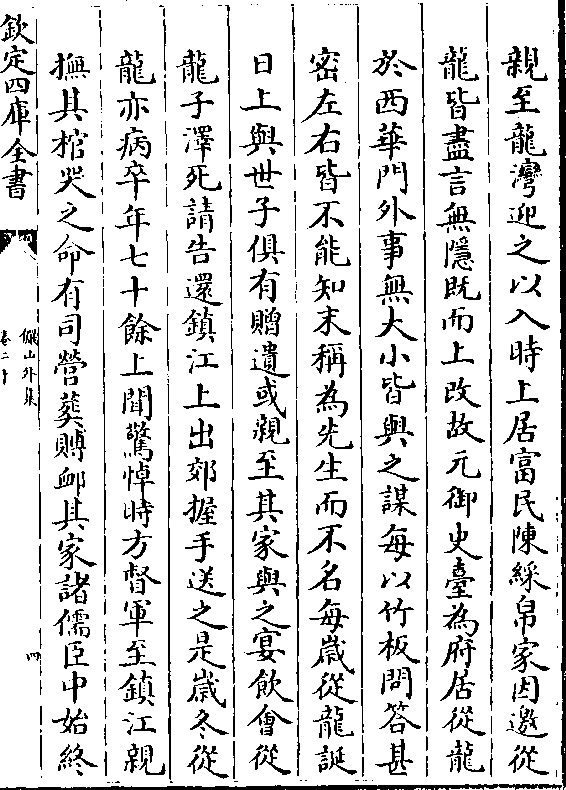 親至龍灣迎之以入時上居富民陳綵帛家因邀從
龍皆盡言無隱既而上改故元御史臺為府居從龍
於西華門外事無大小皆與之謀每以竹板問答甚
密左右皆不能知末稱為先生而不名每嵗從龍誕
日上與世子俱有贈遺或親至其家與之宴飲會從
龍子澤死請告還鎮江上出郊握手送之是嵗冬從
龍亦病卒年七十餘上聞驚悼時方督軍至鎮江親
撫其棺哭之命有司營葬賻䘏其家諸儒臣中始終
欽定四庫全書
儼山外集
卷二十
四